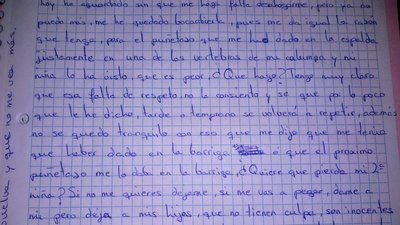 hoy he aguantado sin que me haga falta desahogarme, pero ya no
puedo más, me he quedado bocabierta, pues me da igual la razón
que tenga, pero el puñetazo que me ha dado en la espalda
justamente en una de las vertebras de mi columpa y mi
niña lo ha visto, que es peor, ¿Que hago? Tengo muy claro
que esa falta de respeto, no la consiento y se que por lo poco
que le he dicho, tarde o temprano se volverá a repetir, además
no se quedo tranquilo con eso que me dijo que me tenia
que haber dado en la barriga o que el proximo
puñetazo me lo daba en la barriga, ¿Quiere que pierda mi 2ª
niña? Si no me quieres dejame, si me vas a pegar, dame a
mi pero deja a mis hijas, que no tienen culpa, son inocentes
vuelva y que no me vea más,